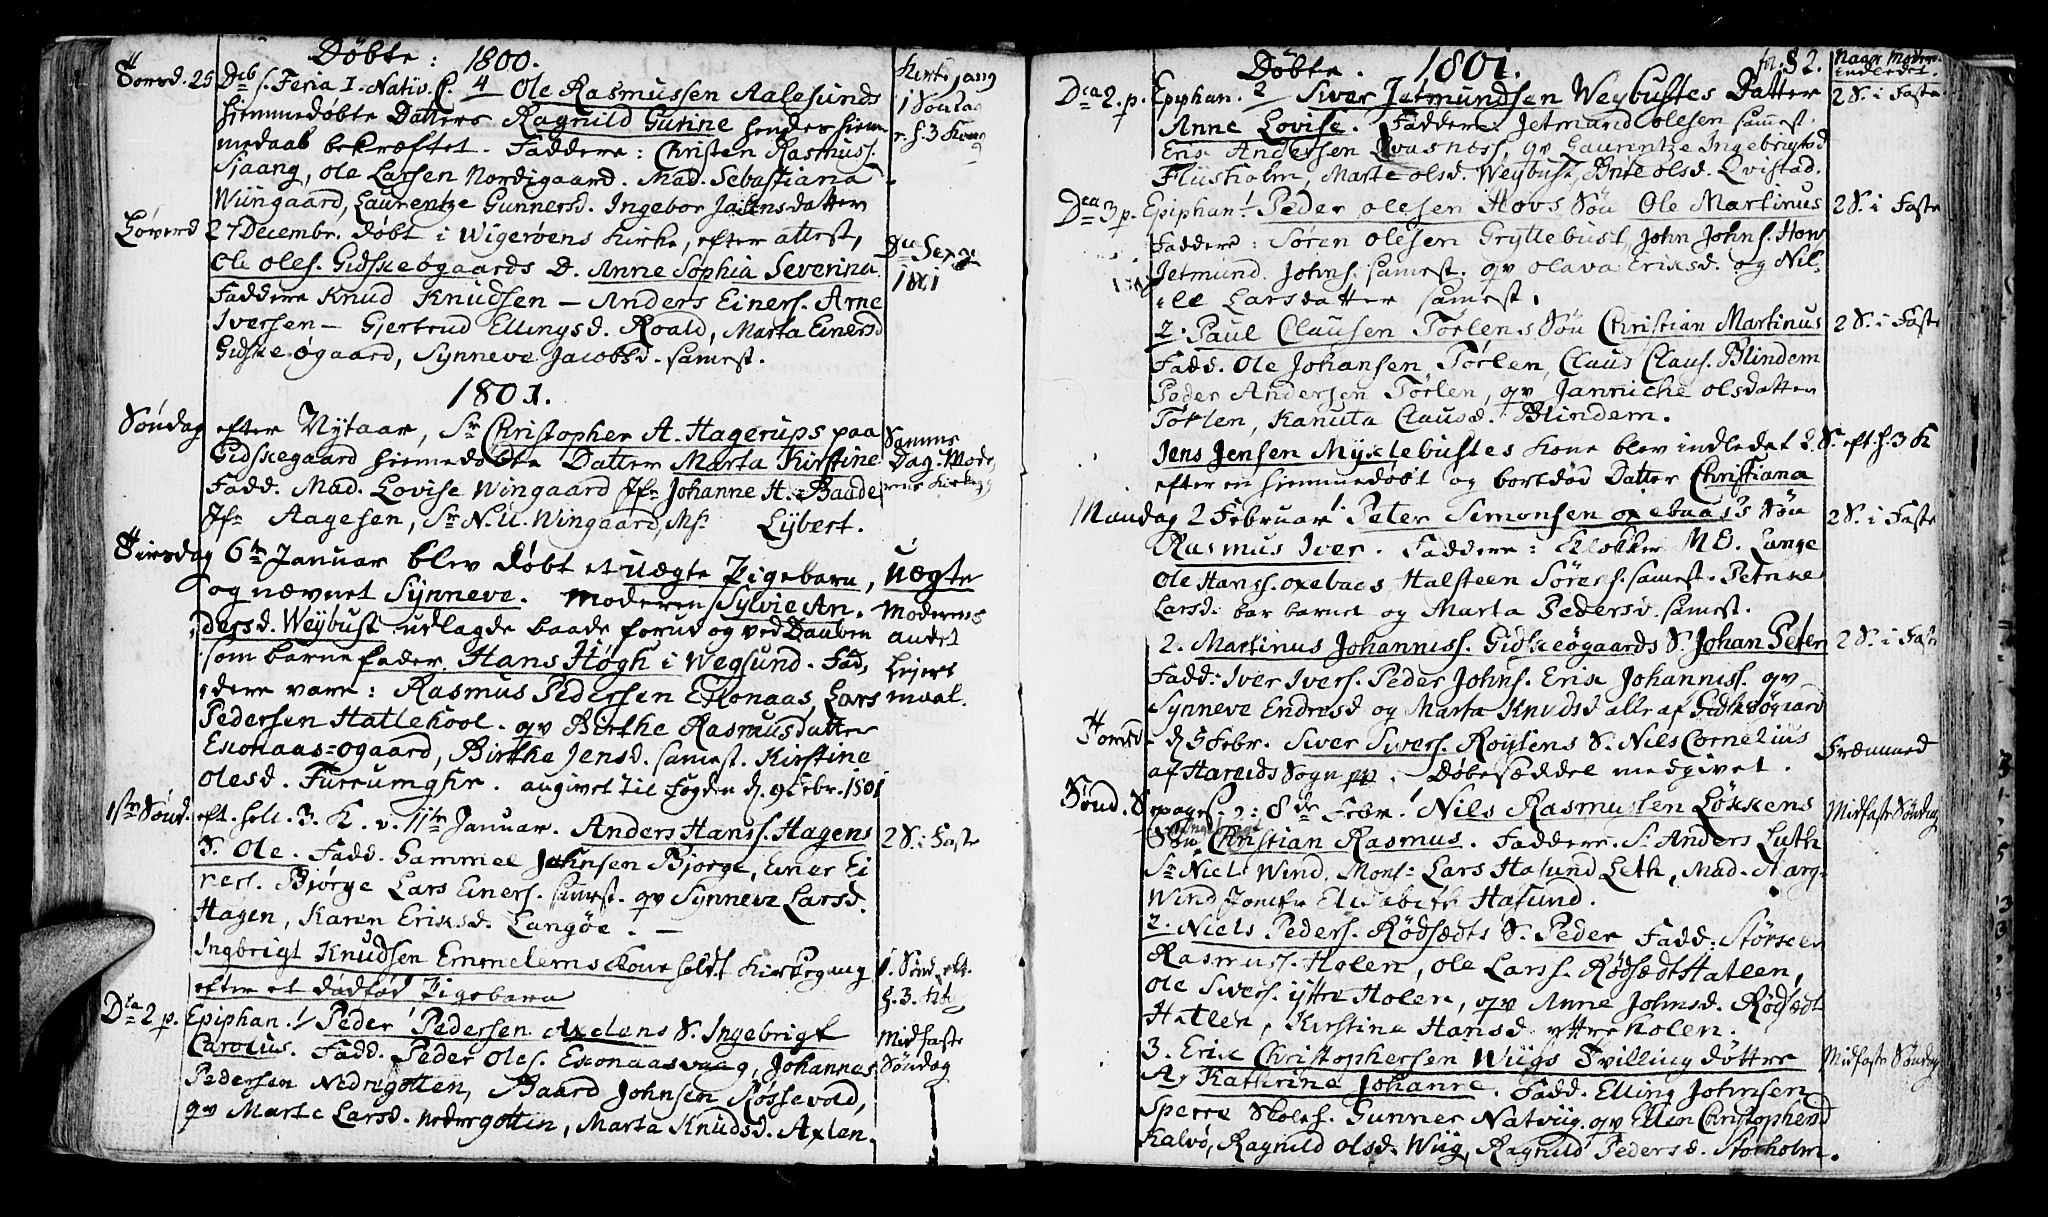 Døbte: 1800.
Torsd. 25 Dcb s. Feria I. Nativ. C. 4 Ole Rasmussen Aalesunds
hiemmedøbte Datters Ragnild Gurine hendes hiem
medaab bekræftet. Faddere: Christen Rasmuss.
Sjaang, Ole Larsen Nordigaard. Mad. Sebastiana
Wiingaard, Laurentze Gunnersd. Ingebor datter
Kirkegang
1 Søndag
Løverd 27 Decembr. døbt i Wigerøens Kirke, efter attest,
Ole Oles. Gidskeøgaards D. Anne Sophia Severina
Faddere Knud Knudsen – Anders Einers. Arne
Iversen – Gjertrud Ellingsd. Roald, Marta Einersd
Gidskeøgaard, Synneve Jacobsd. samest.
1801
1801.
Søndag efter Nytaar, Sr Christopher A. Hagerups paa
Gidskegaard hiemmedøbte Datter Marta Kirstine
Fadd. Mad. Lovise Wingaard Jfr Johanne H. Baade
Jfr Aagesen, Sr N. U. Wingaard, Ms. Lybert.
Samme
Dag Mode
Tirsdag 6te Januar blev døbt et uægte Pigebarn,
og nævnet Synneve. Moderen Sylvie An,
dersd. Weybust udlagde baade forud og ved Daaben
som barnefader Hans Høgh i Wegsund. Fad,
dere vare: Rasmus Pedersen Exonaas, Lars
Pedersen Hatlehool. qv Birthe Rasmusdatter
Exonaas-øgaard, Birthe Jensd. samest. Kirstine
Olesd. Furrumgher. angivet til Fogden d. 9 Febr. 1801
uægte
Moderens
andet
Leiers
maal.
1ste Sønd. eft. hell. 3. K. v. 11te Januar. Anders Hanss. Hagens
S. Ole. Fadd. Gammel Johnsen Bjørge, Einer Ei
ners. Bjørge Lars Einers. samest. qv Synneve Larsd.
Hagen, Karen Eriksd. Langøe. –
2 S. i Faste
Ingbrigt Knudsen Emmelems Kone holdt Kirkegang
efter et dødfød Pigebarn
1. Sønd. eft.
Dca 2 p. Epiphan. 1 Peder Pedersen Axlens S. Ingebrigt
Carolus. Fadd. Peder Oles. Exonaasvaag, Johannes
Pedersen Nedregotten, Baard Johnsen Røssevold,
qv Marte Larsd. nedregotten, Marta Knudsd. Axlen.
Midfaste
Søndag
Døbte. 1801. fol. 82.
Naar Moder.
indledet.
Dca 2. p. Epiphan. 2 Siver Jetmundsen Weybustes Datter 2 S. i Faste
Anne Lovise. Faddere Jetmund Olesen samest.
Erik Andersen Qvasness, qv Laurentze Ingebrigtsd
Flisholm, Marte Olsd. Weybust, Anne Olsd. Qvistad.
Dca 3 p. Epiphan. 1 Peder Olesen Hovs Søn Ole Martinus 2 S. i Faste
Faddere: Søren Olesen Gryttebust, John Johns. How
Jetmund Johns. samest. qv Olava Eriksd. og Nil-
le Larsdatter samest.
2. Paul Clausen Tørlens Søn Christian Martinus 2 S. i Faste
Fadd. Ole Johansen Tørlen, Claus Claus. Blindem
Peder Andersen Tørlen, qv Janniche Olsdatter
Tørlen, Kanuta Clausd. Blindem.
Jens Jensen Myklebustes Kone blev indledet 2. S. eft h. 3 K
efter en hiemmedøbt og bortdød Datter Christiana
Mandag 2 Februar 1 Peter Simonsen Oxebaas's Søn 2 S. i Faste
Rasmus Iver. Faddere: Klokker M. O. Lange
Ole Hanss. Oxebaes, Halsteen Sørens. samest. Petrike
Larsd. bar barnet og Marta Pedersd. samest.
2. Martinus Johanness. Gidskeøgaards S. Johan Peter 2 S. i Faste
Fadd: Iver Ivers. Peder Johns. Erik Johanness. qv
Synneve Endresd og Marta Knudsd alle af Gidskeøgaard
Torsd. d. 5 Febr. Siver Sivers. Roylens S. Nils Cornelius
af Hareids Sogn . Døbesæddel medgivet. Fremmed
Sønd. Sexages. 8de Febr. 1 Nils Rasmussen Løkkens Midfaste Søndag
Søn Christian Rasmus. Faddere. Sr Anders Luth
Sr Niels Wind, Mons. Lars Hasund Leth, Mad. Aarg.
Wind Jomfr Elisabeth Hasund.
2. Niels Peders. Rødsædts S. Peder Fadd: Størker
Rasmuss. Holen, Ole Larss. Rødsædt Hatlen,
Ole Sivers. ijttre Holen, qv Anne Johnsd. Rødsædt
Hatlen, Kirstine Hansd. yttre Holen.
3. Erik Christophersen Wiigs Tvilling døttre Midfaste Søndag
A, Kathrine Johanne. Fadd. Elling Johnsen
Sperre Skoles. Gunner Natviig. qv Ellen Christophersd
Kalvø, Ragnild Olsd. Wiig, Ragnild Pedersd. Storholm.